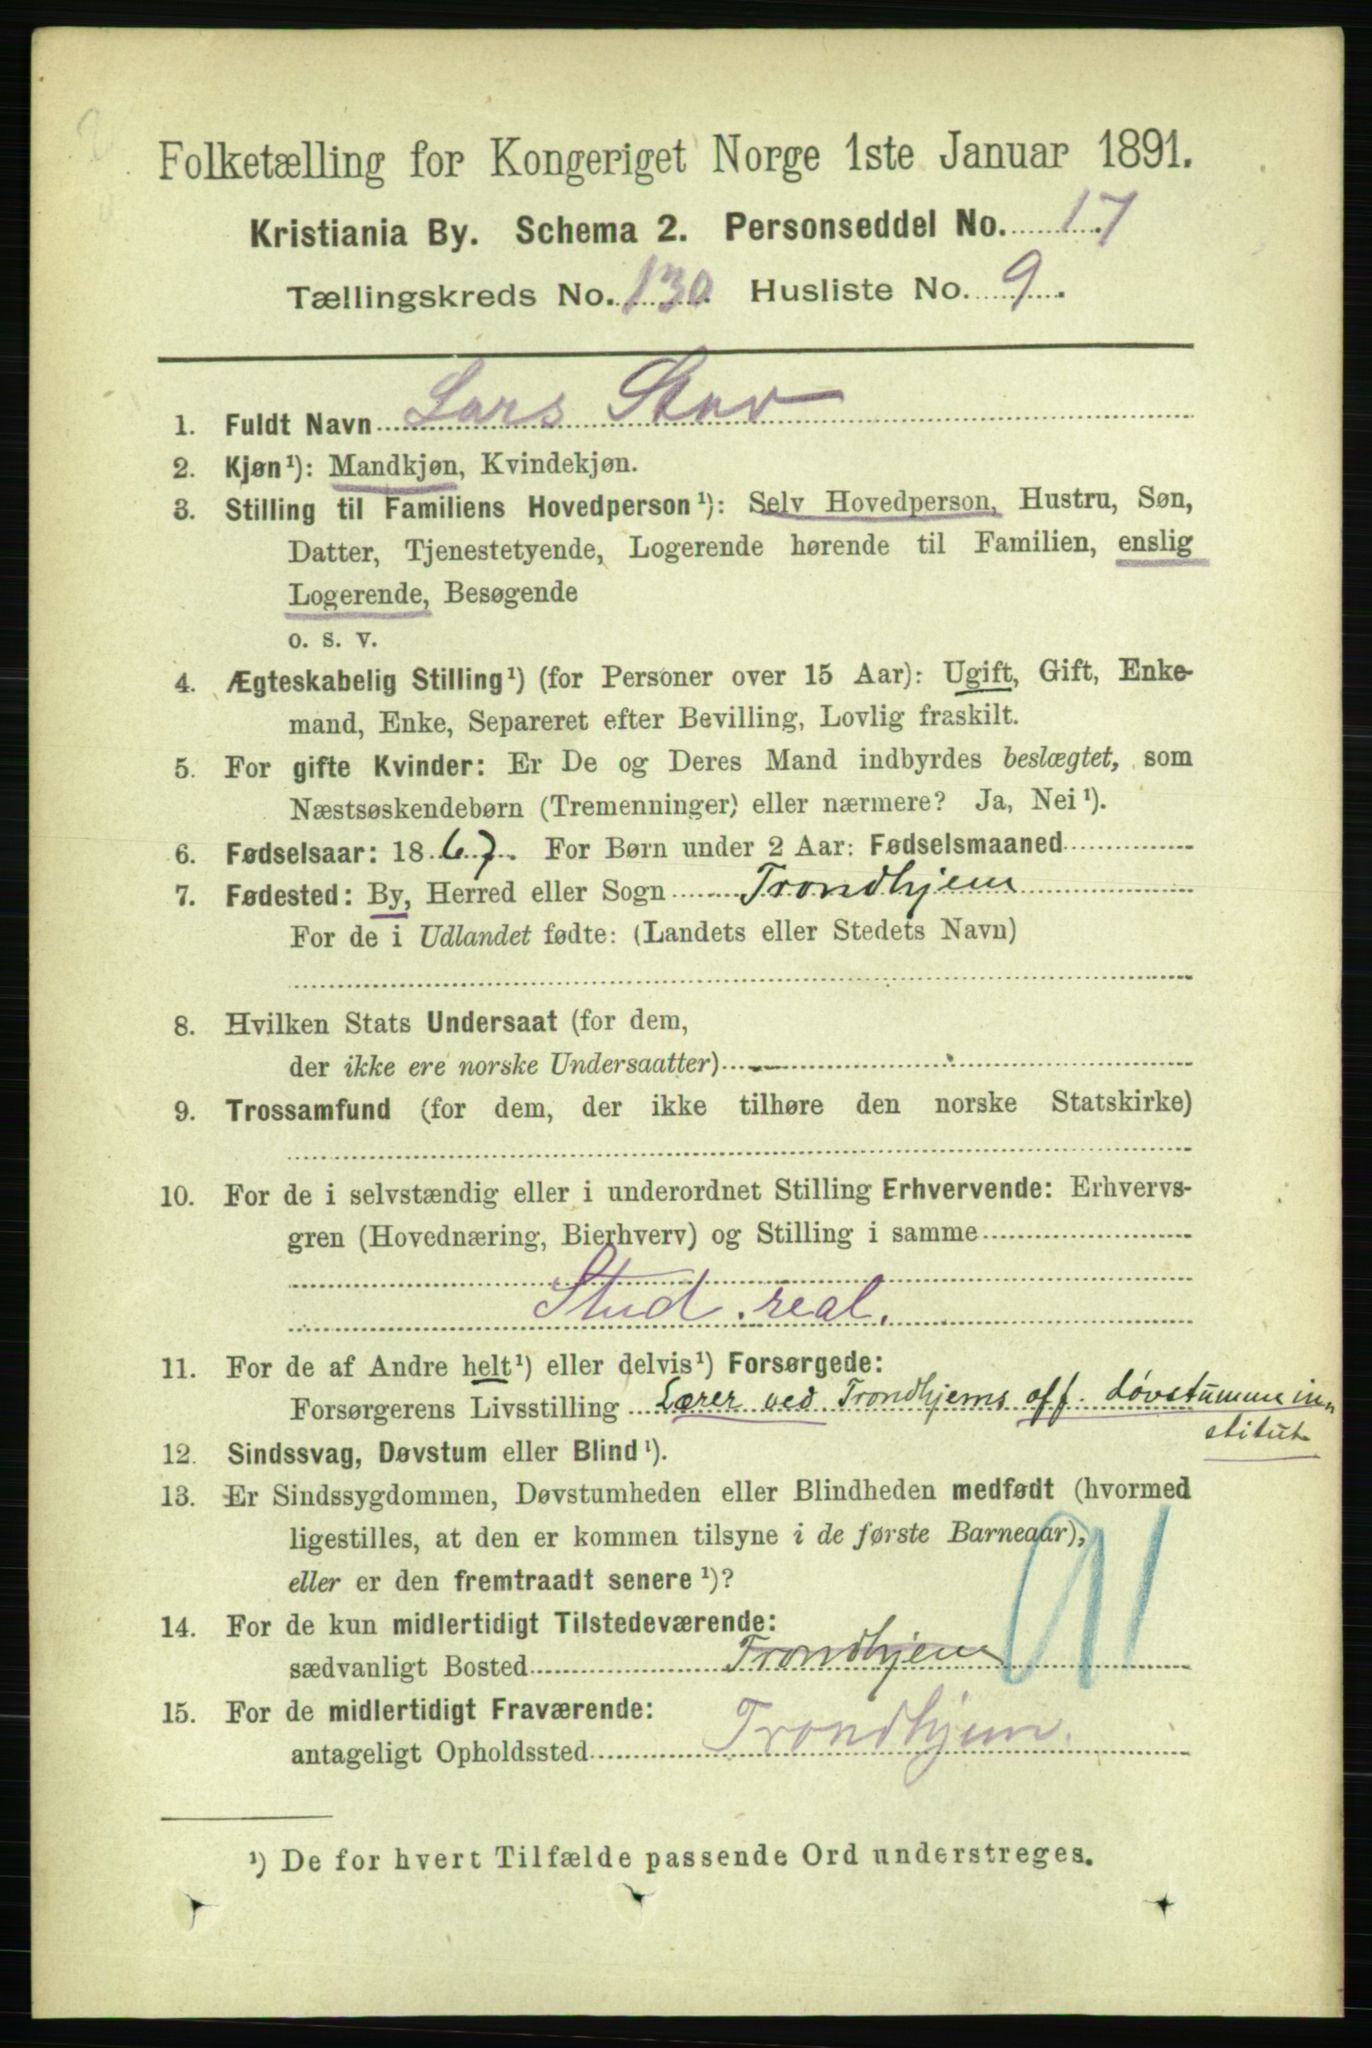 Folketælling for Kongeriget Norge 1ste Januar 1891.
Kristiania By. Schema 2. Personseddel No. 17.
Tællingskreds No. 130. Husliste No. 9.
1. Fuldt Navn Lars Stav
2. Kjøn¹): Mandkjøn, Kvindekjøn.
3. Stilling til Familiens Hovedperson¹): Selv Hovedperson, Hustru, Søn,
Datter, Tjenestetyende, Logerende hørende til Familien, enslig
Logerende, Besøgende
o. s. v.
4. Ægteskabelig Stilling¹) (for Personer over 15 Aar): Ugift, Gift, Enke-
mand, Enke, Separeret efter Bevilling, Lovlig fraskilt.
5. For gifte Kvinder: Er De og Deres Mand indbyrdes beslægtet, som
Næstsøskendebørn (Tremenninger) eller nærmere? Ja, Nei¹).
6. Fødselsaar: 1867. For Børn under 2 Aar: Fødselsmaaned
7. Fødested: By, Herred eller Sogn Trondhjem
For de i Udlandet fødte: (Landets eller Stedets Navn)
8. Hvilken Stats Undersaat (for dem,
der ikke ere norske Undersaatter)
9. Trossamfund (for dem, der ikke tilhøre den norske Statskirke)
10. For de i selvstændig eller i underordnet Stilling Erhvervende: Erhvervs-
gren (Hovednæring, Bierhverv) og Stilling i samme
Stud. real.
11. For de af Andre helt¹) eller delvis¹) Forsørgede:
Forsørgerens Livsstilling Lærer ved Trondhjems off. døvstummein-
stitut
12. Sindssvag, Døvstum eller Blind¹).
13. Er Sindssygdommen, Døvstumheden eller Blindheden medfødt (hvormed
ligestilles, at den er kommen tilsyne i de første Barneaar),
eller er den fremtraadt senere¹)?
14. For de kun midlertidigt Tilstedeværende:
sædvanligt Bosted Trondhjem
15. For de midlertidigt Fraværende:
antageligt Opholdssted Trondhjem.
¹) De for hvert Tilfælde passende Ord understreges.